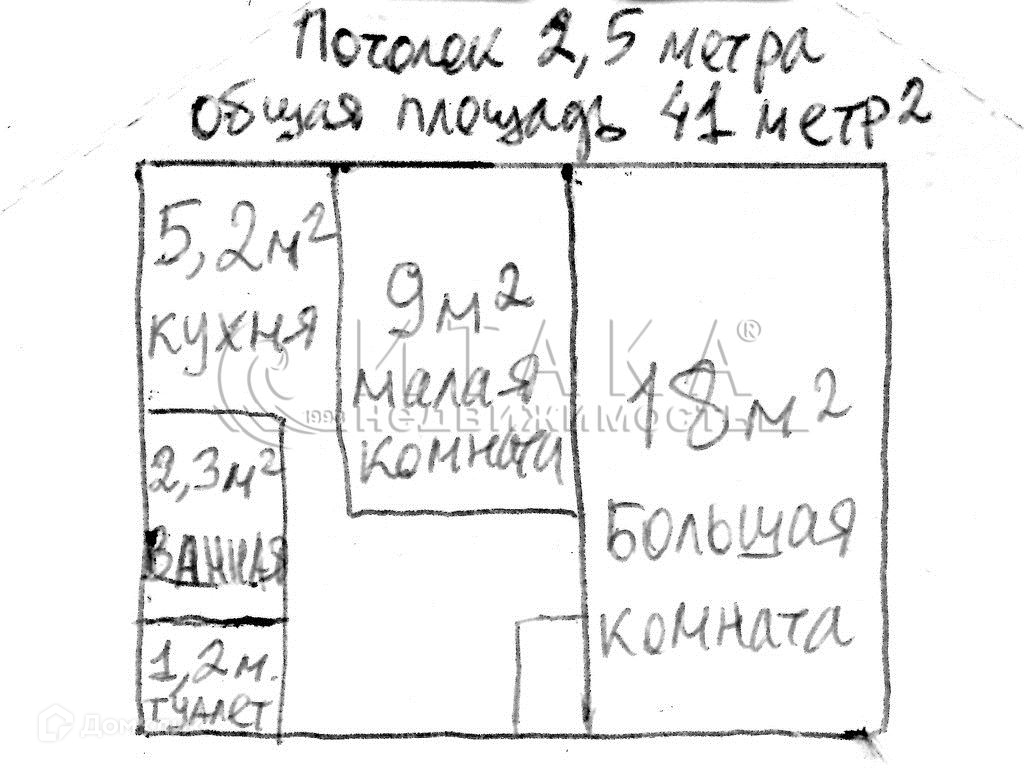 Потолок 2,5 метра
общая площадь 41 метр2
5,2м2
кухня
9м2
малая
комната
18м2
Большая
комната
2,3м2
ВАННАЯ
1,2м.
туалет
ИТАКА®
1993 НЕДВИЖИМОСТЬ